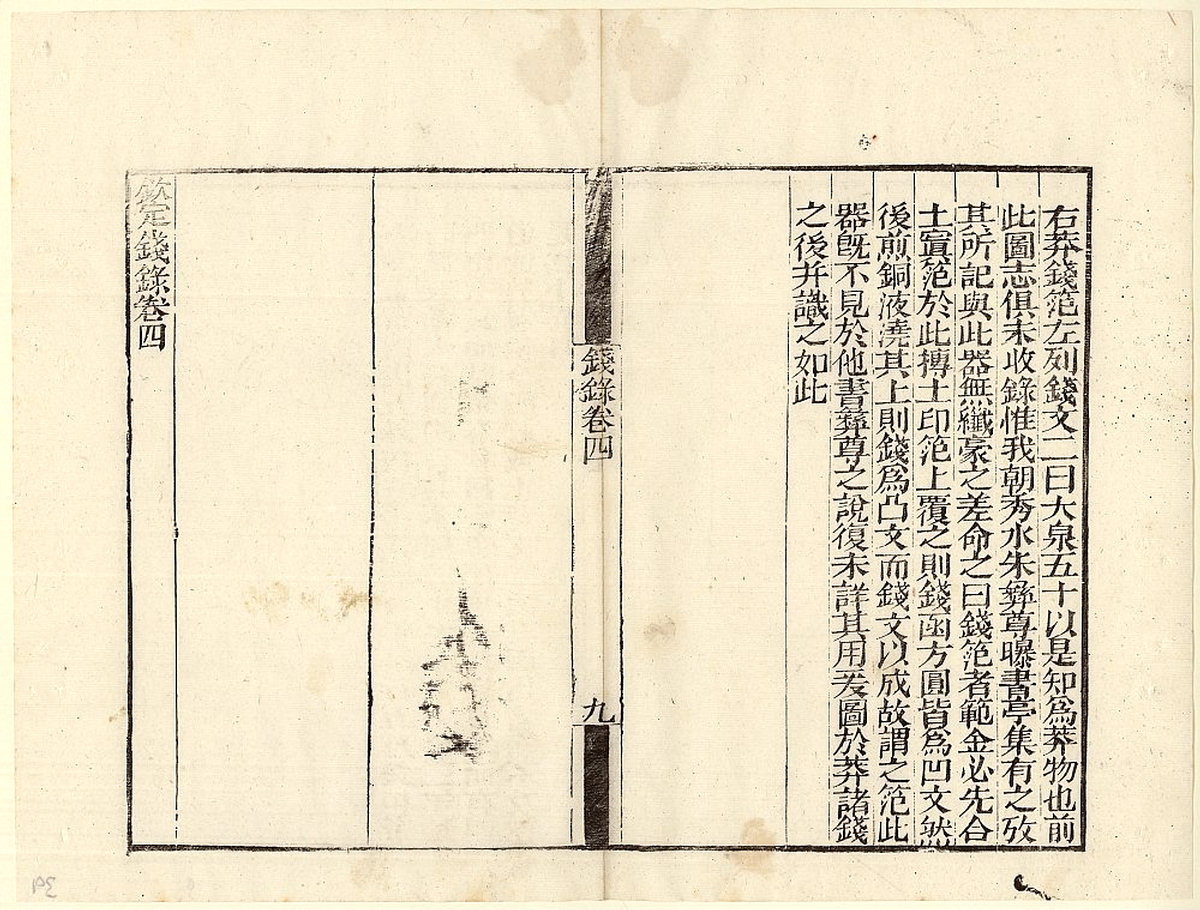 右莽錢笵左列錢文二曰大泉五十以是知為莽物也前
此圖志俱未收錄惟我朝秀水朱彝尊曝書亭集有之攷
其所記與此器無纖豪之差命之曰錢笵者範金必先合
土寘笵於此摶土印笵上覆之則錢函方圓皆為凹文然
後煎銅液澆其上則錢為凸文而錢文以成故謂之笵此
器旣不見於他書彝尊之說復未詳其用爰圖於莽諸錢
之後并識之如此
錢錄卷四
九
欽定錢錄卷四